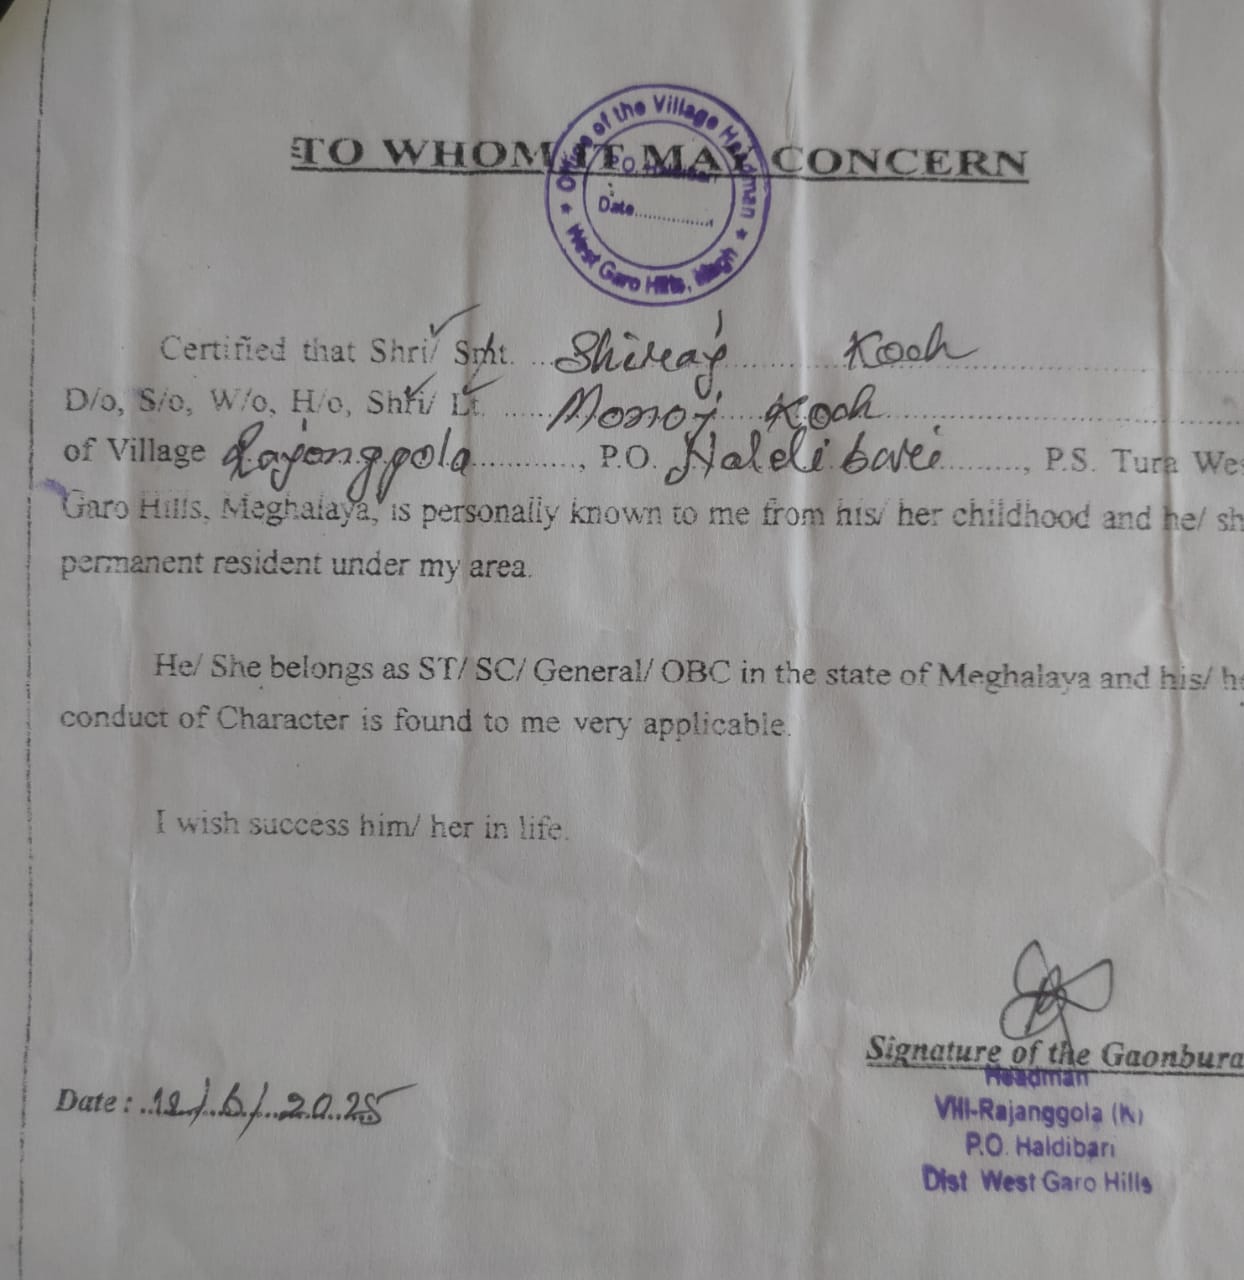 TO WHOM IT MAY CONCERN
Office of the Village Headman
P.O. Haldibari
Date....................
West Garo Hills, Megh
Certified that Shri/ Smt. ... Shiraj ....... Koch ....................
D/o, S/o, W/o, H/o, Shri/ Lt. ...... Monoj .... Koch ....................
of Village Rajonggola............, P.O. Haldibari........., P.S. Tura We
Garo Hills, Meghalaya, is personally known to me from his/ her childhood and he/ sh
permanent resident under my area.
He/ She belongs as ST/ SC/ General/ OBC in the state of Meghalaya and his/ he
conduct of Character is found to me very applicable.
I wish success him/ her in life.
Signature of the Gaonbura
Headman
Vill-Rajanggola (K)
P.O. Haldibari
Dist West Garo Hills
Date : .12/.6/.2025